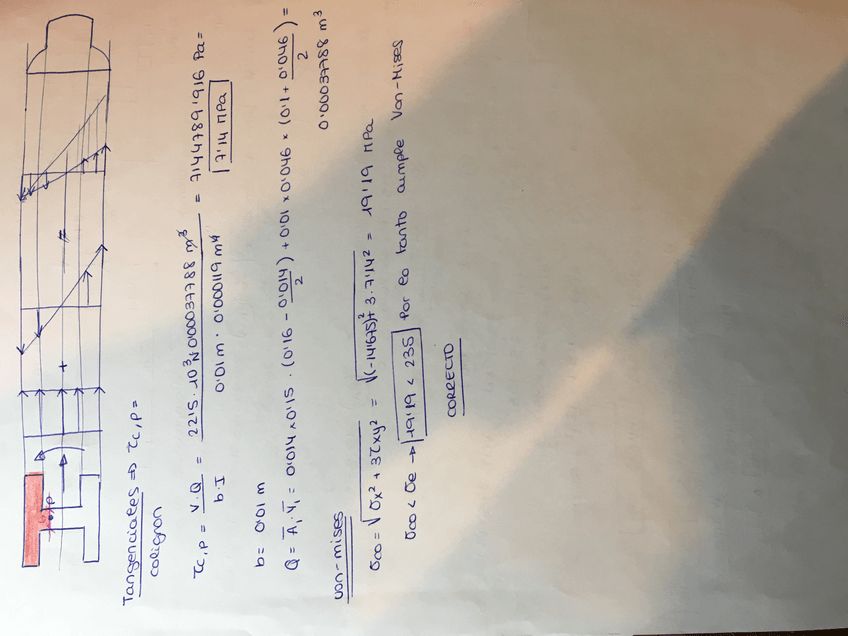 Tangenciales ⇒ τc,p =
colignon
τc,p = V·Q / b·I = 22'5·10³N·0'00037788 m³ / 0'01 m · 0'000119 m⁴ = 7144789'916 Pa =
7'14 MPa
b = 0'01 m
Q = A̅₁·Y̅₁ = 0'014 × 0'15 · (0'16 - 0'014/2) + 0'01 × 0'046 × (0'1 + 0'046/2) =
0'00037788 m³
Von-mises
σco = √(σx² + 3τxy²) = √((-14'675)² + 3·7'14²) = 19'19 MPa
σco < σe → 19'19 < 235 Por lo tanto cumple Von-Mises
CORRECTO